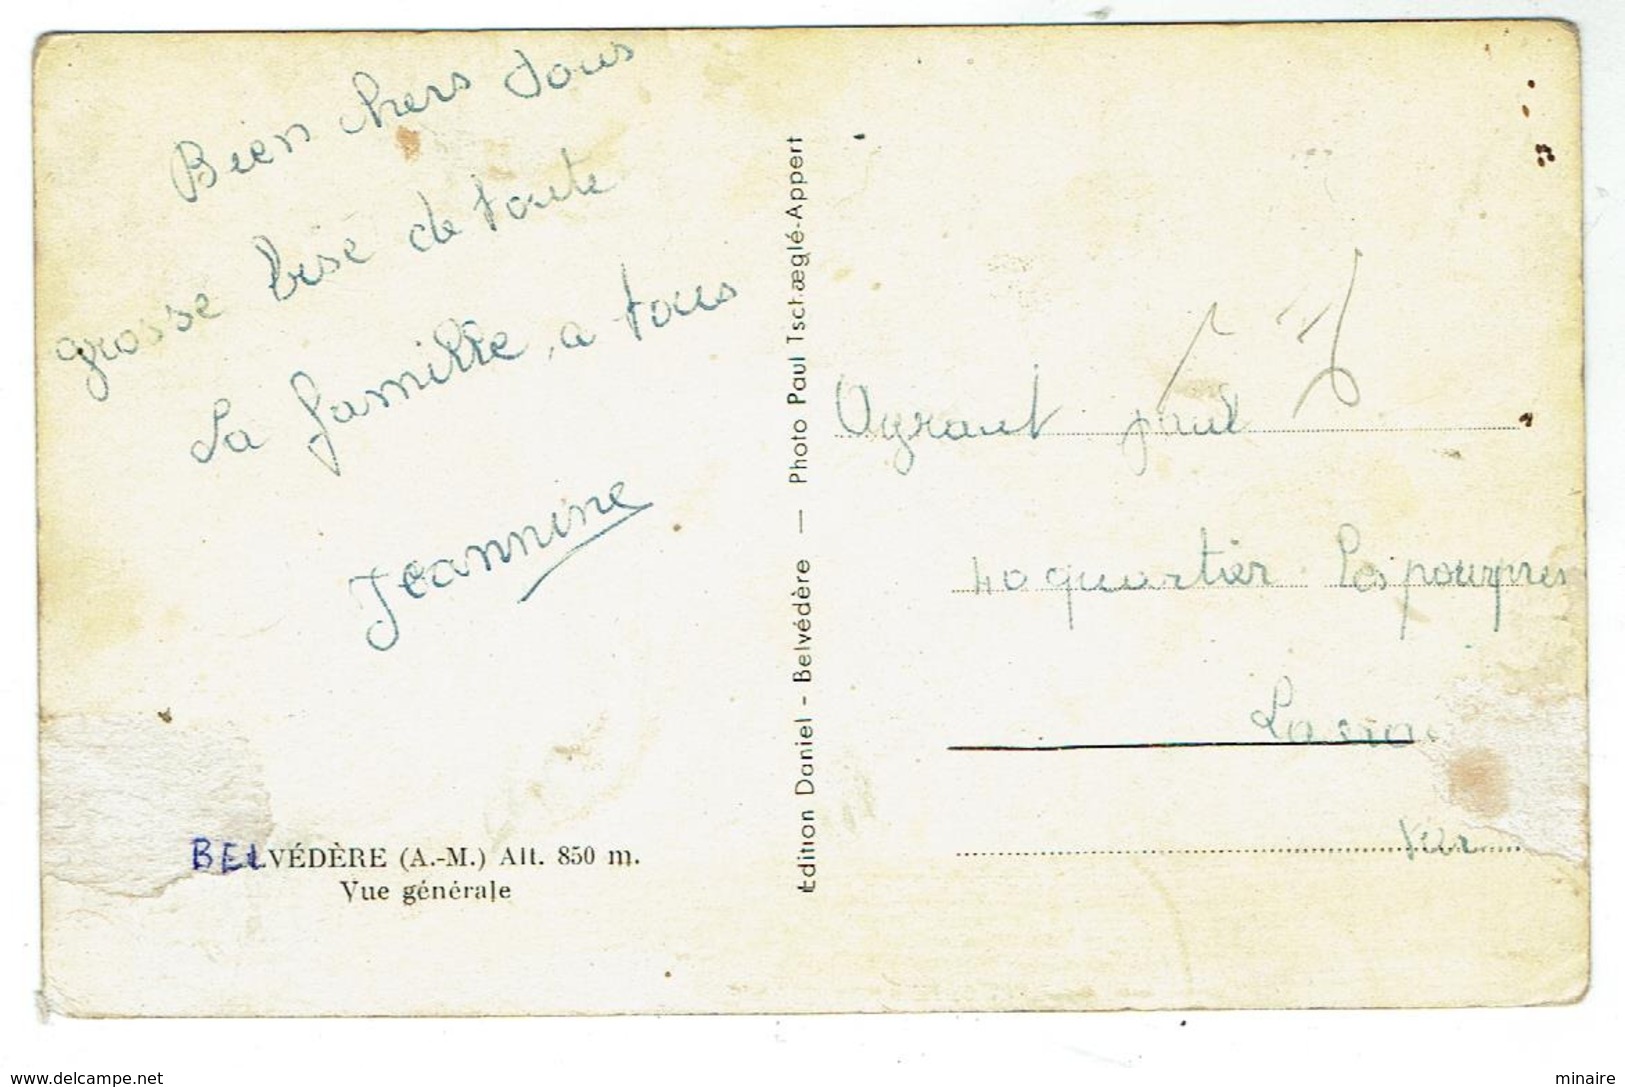 Bien chers tous
grosse bise de toute
la famille, a tous
Jeannine
BELVÉDÈRE (A.-M.) Alt. 850 m.
Vue générale
Édition Daniel - Belvédère — Photo Paul Tschæglé-Appert
Ayraut paul
40 quartier Les pourpres
Var
www.delcampe.net
minaire